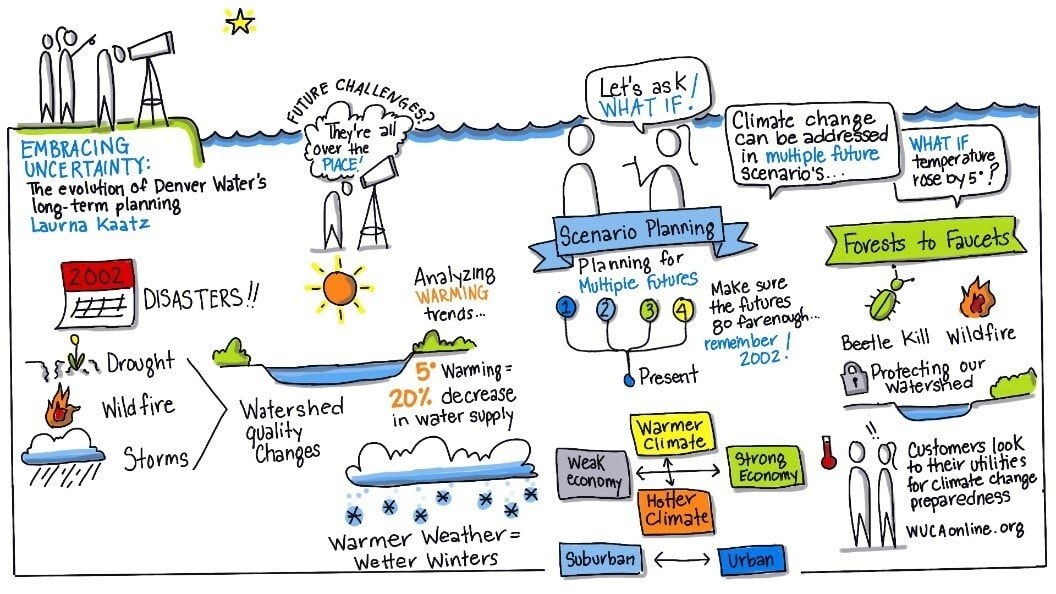 EMBRACING
UNCERTAINTY:
The evolution of Denver Water's
long-term planning
Laurna Kaatz
FUTURE CHALLENGES?
They're all
over the
PLACE!
2002
DISASTERS!!
Drought
Wildfire
Storms
Watershed
quality
Changes
Analyzing
WARMING
trends...
5° Warming =
20% decrease
in water supply
Warmer Weather =
Wetter Winters
Let's ask
WHAT IF!
Scenario Planning
Planning for
Multiple Futures
1 2 3 4
Present
Make sure
the futures
go far enough...
remember
2002!
Warmer
Climate
Weak
economy
Strong
Economy
Hotter
Climate
Suburban
Urban
Climate change
can be addressed
in multiple future
scenario's...
WHAT IF
temperature
rose by 5°?
Forests to Faucets
Beetle Kill
Wildfire
Protecting our
watershed
!!
Customers look
to their utilities
for climate change
preparedness
WUCAonline.org